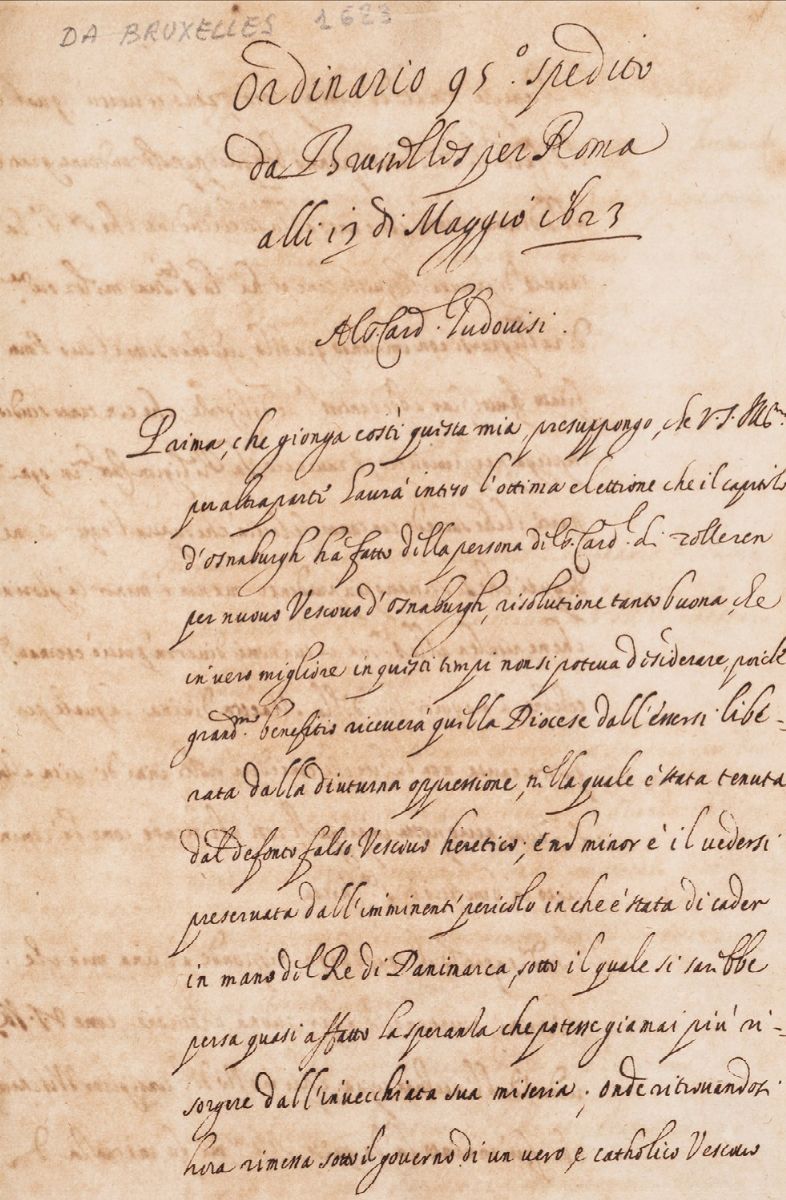 DA BRUXELLES 1623
Ordinario 95.º spedito
da Bruselles per Roma
alli 13 di Maggio 1623
Al S. Card.l Ludouisi.
Prima, che gionga costì questa mia, presuppongo, che V. S. Ill.ma
per altra parte haurà inteso l'ottima elettione che il capitolo
d'Osnaburgh hà fatto della persona del S. Card.l di Zolleren
per nuouo Vescouo d'Osnaburgh, risolutione tanto buona, che
in uero migliore in questi tempi non si poteua desiderare, poiche
grand.mo benefitio riceuerà quella Diocese dall'essersi libe-
rata dalla diuturna oppressione, nella quale è stata tenuta
dal defonto falso Vescouo heretico; e nõ minor è il uedersi
preseruata dall'imminente pericolo in che è stata di cader
in mano del Re di Danimarca, sotto il quale si sarebbe
persa quasi affatto la speranza che potesse giamai più ri-
sorgere dall'inuecchiata sua miseria; onde ritrouandosi
hora rimessa sotto il gouerno di un uero, e catholico Vescouo